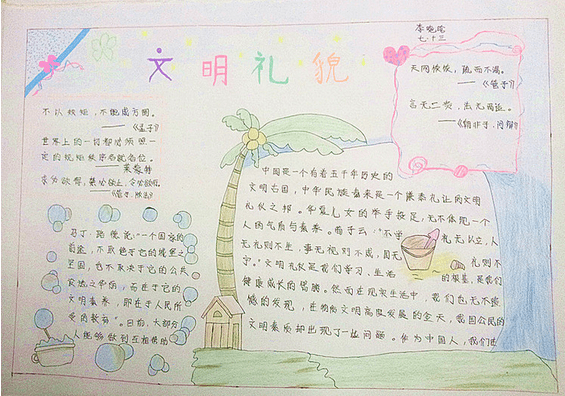 文明礼貌
李晓琀
七.十三
天网恢恢，疏而不漏。
——《老子》
言无二贵，法无两适。
——《韩非子.问辩》
不以规矩，不能成方圆。
——《孟子》
世界上的一切都必须照一
定的规矩秩序各就各位。
——莱蒙特
求必欲得，禁必欲止，令必欲行。
——《管子.法法》
马丁.路德说："一个国家的
前途，不取决于它的城堡之
坚固，也不取决于它的公共
设施之华丽，而在于它的
文明素养，即在于人民所
受的教育"。目前，大部分
人能够做到互相帮助
中国是一个有着五千年历史的
文明古国，中华民族素来是一个谦恭礼让的文明
礼仪之邦。华夏儿女的举手投足，无不体现一个
人的气质与素养。荀子云："不学
礼无以立，人
无礼则不生，事无礼则不成，国无
礼则不
宁。"文明礼仪是我们学习、生活
的根基，是我们
健康成长的臂膀。然而在现实生活中，我们也无不遗
憾的发现，在物质文明高度发展的今天，我国公民的
文明素质却出现了一些问题。作为中国人，我们